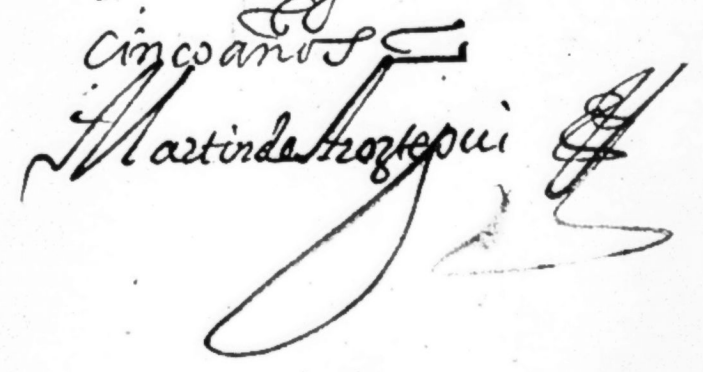 cinco años
Martin de Aroztegui